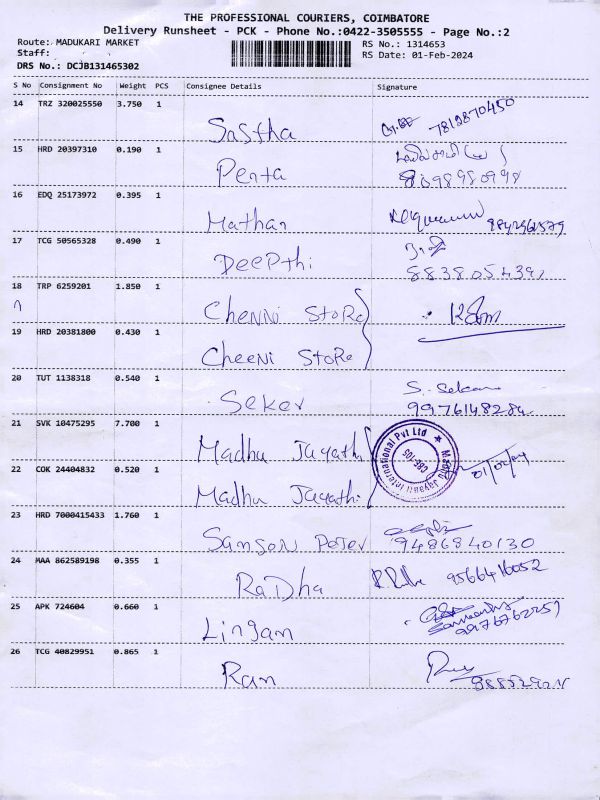 THE PROFESSIONAL COURIERS, COIMBATORE
Delivery Runsheet - PCK - Phone No.:0422-3505555 - Page No.:2
Route: MADUKARI MARKET
RS No.: 1314653
Staff:
RS Date: 01-Feb-2024
DRS No.: DCJB131465302
S No Consignment No Weight PCS Consignee Details Signature
14 TRZ 320025550 3.750 1
Sastha 7812870450
15 HRD 20397310 0.190 1
Penta 8098980998
16 EDQ 25173972 0.395 1
Mathan
17 TCG 50565328 0.490 1
DeePthi
18 TRP 6259201 1.850 1
Chenni Store
19 HRD 20381800 0.430 1
Cheeni Store
20 TUT 1138318 0.540 1
Seker S. Sekar
9976148284
21 SVK 10475295 7.700 1
Madhu Jayathi
22 COK 24404832 0.520 1
Madhu Jayathi
Madhu Jayanti International Pvt Ltd
CBE-105
23 HRD 7000415433 1.760 1
Samson Peter 9486840130
24 MAA 862589198 0.355 1
RaDha R. Radha 9566416052
25 APK 724604 0.660 1
Lingam
9976762259
26 TCG 40829951 0.865 1
Ram